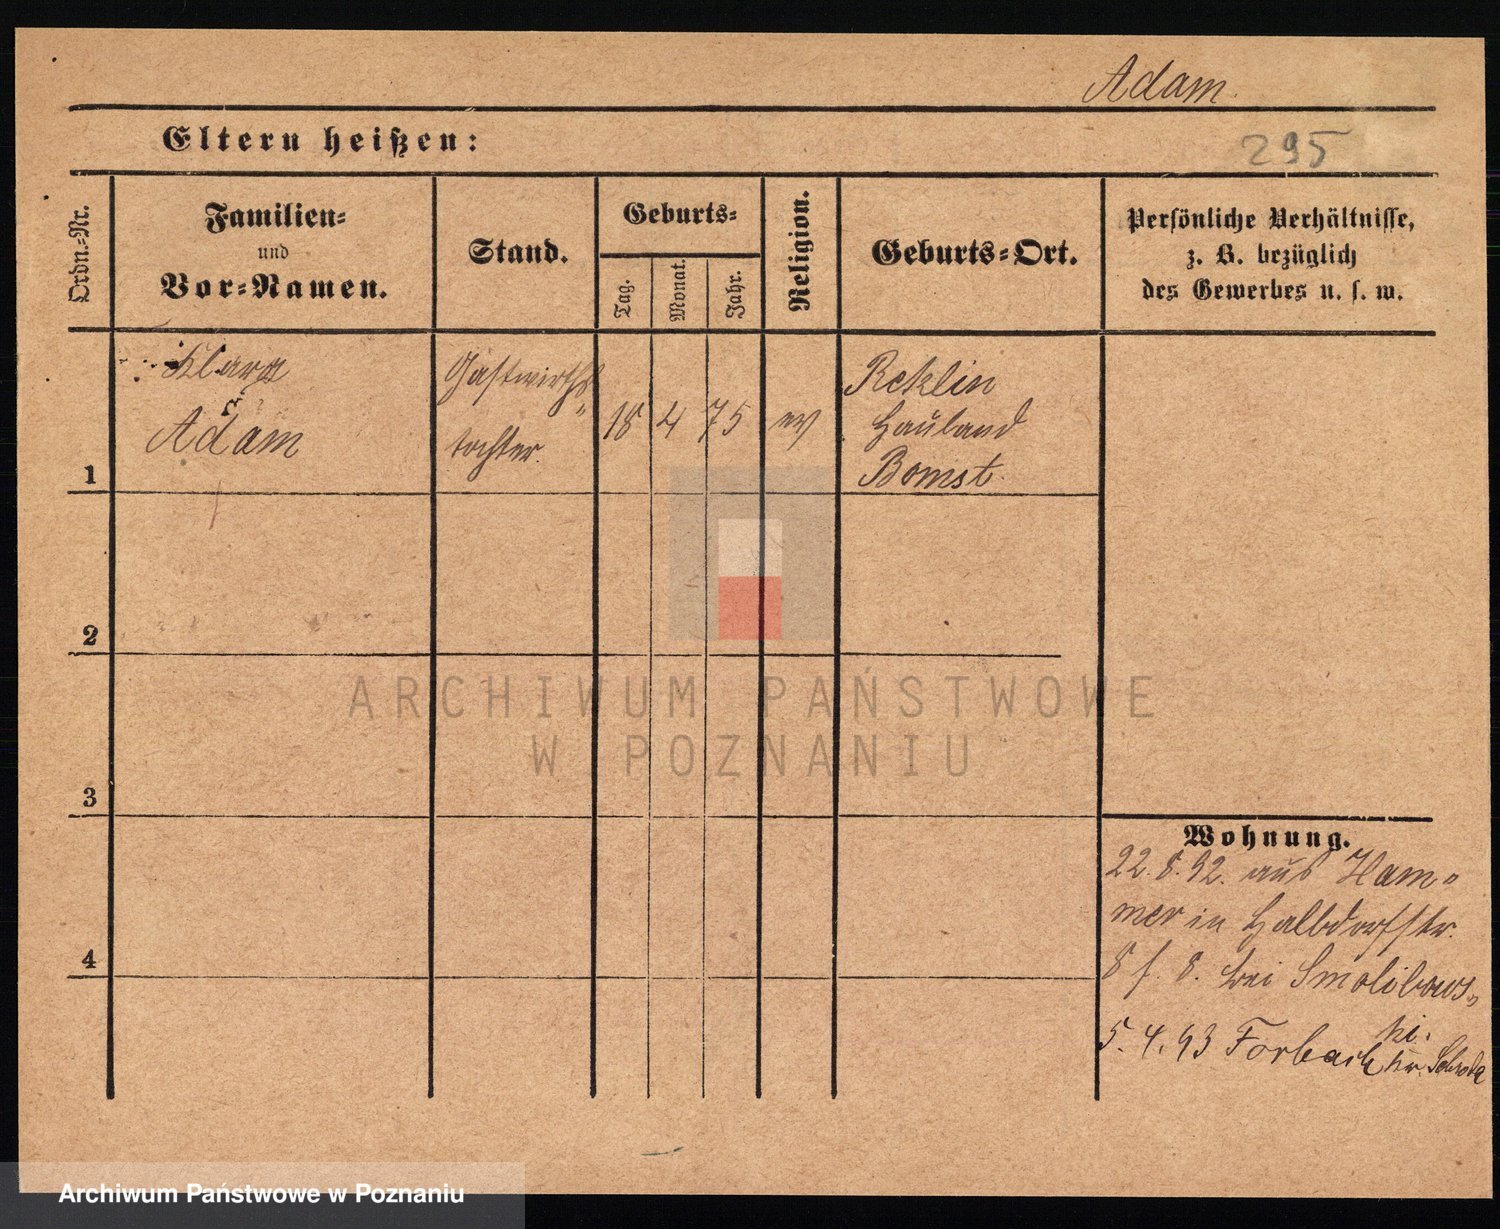 Adam.
Eltern heißen:
295
Ordn.-Nr.
Familien-
und
Vor-Namen.
Stand.
Geburts-
Tag.
Monat.
Jahr.
Religion.
Geburts-Ort.
Persönliche Verhältnisse,
z. B. bezüglich
des Gewerbes u. s. w.
1
Klara
Adam
Gastwirths-
tochter.
18
4
75
ev
Reklin
Hauland
Bomst.
2
3
4
Wohnung.
22. 8. 92. aus Ham-
mer in Halbdorfstr.
8 f. 8. bei Smolibows-
ki.
5. 4. 93 Forbach Kr. Schroda
ARCHIWUM PAŃSTWOWE
W POZNANIU
Archiwum Państwowe w Poznaniu